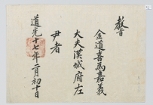 教
金道喜為嘉義
大夫漢城府左
尹者
道光十七年二月初十日